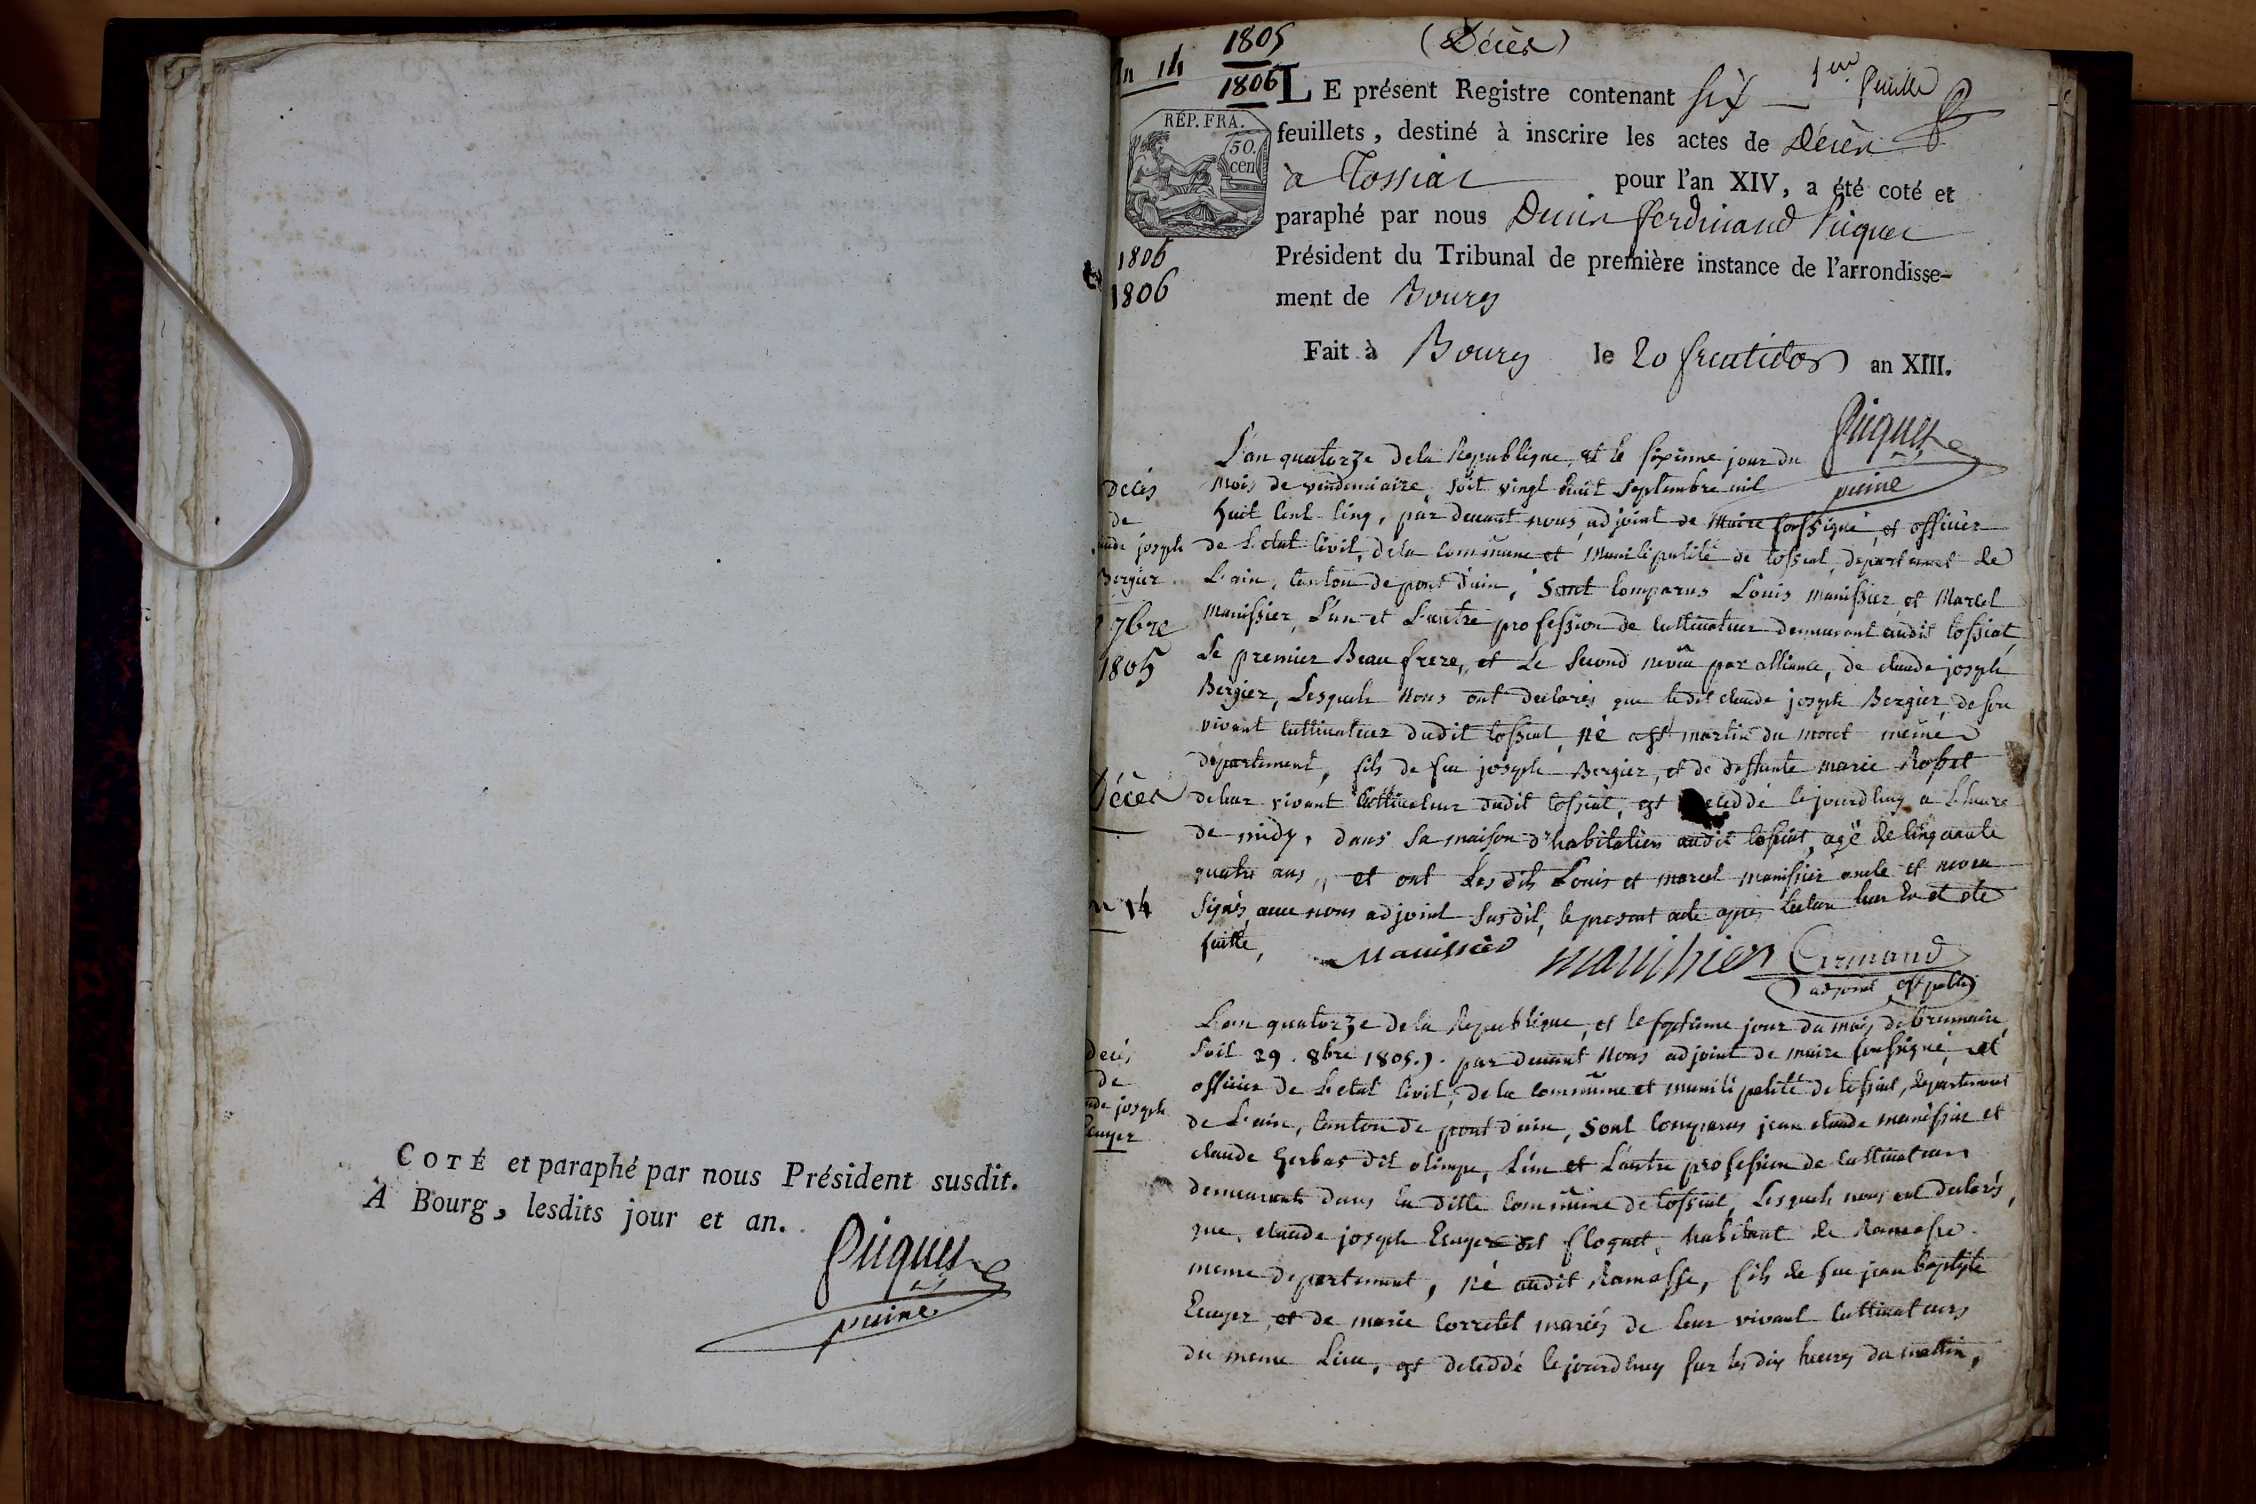 COTÉ et paraphé par nous Président susdit.
A Bourg, lesdits jour et an.
Picquet
puiné
An 14
1805
1806
(Décès)
1er feuillet
LE présent Registre contenant six
feuillets, destiné à inscrire les actes de Décès
à Tossiat pour l'an XIV, a été coté et
paraphé par nous Denis ferdinand Picquet
Président du Tribunal de première instance de l'arrondisse-
ment de Bourg
Fait à Bourg le 20 fructidor an XIII.
RÉP. FRA.
50.
cen
1806
1806
Picquet
puiné
décès
de
joseph
Bergier
7bre
1805
L'an quatorze de la Republique, et le sixieme jour du
mois de vendemiaire, soit vingt huit septembre mil
huit cent cinq, par devant nous adjoint de maire soussigné, et officier
de L'etat civil, de la commune et municipalité de tossiat, departement de
L'ain, canton de pont d'ain, sont comparus Louis manissier et Marcel
manissier, L'un et L'autre profession de cultivateur demeurant audit tossiat,
Le premier Beau frere, et Le second neveu par alliance, de claude joseph
Bergier, Lesquels Nous ont declarés que ledit claude joseph Bergier, de son
vivant cultivateur dudit tossiat, né a st martin du mont même
département, fils de feu joseph Bergier, et de deffunte marie Rosset
de leur vivant cultivateur dudit tossiat, est deceddé cejourdhuy a L'heure
de midy, dans sa maison d'habitation audit tossiat, agé de cinquante
quatre ans, et ont Lesdits Louis et marcel manissier oncle et neveu
signés avec nous adjoint susdit, le present acte après lecture leur en et ete
faitte,
Manissier
manissier
Armand
adjoint off public
Décès
an 14
décès
de
joseph
Ecuyer
L'an quatorze de la Republique, et le septieme jour du mois de brumaire,
soit 29. 8bre 1805.). par devant Nous adjoint de maire soussigné, et
officier de L'etat civil, de la commune et municipalité de tossiat, departement
de L'ain, canton de pont d'ain, sont comparus jean claude manissier et
claude herbas dit olimpe, L'un et L'autre profession de cultivateurs
demeurants dans la ditte commune de tossiat, Lesquels nous ont declarés,
que, claude joseph Ecuyer dit floquet, habitant de Ramasse
meme departement, né audit Ramasse, fils de feu jean baptiste
Ecuyer, et de marie corretel mariés de leur vivant cultivateurs
du meme Lieu, est deceddé cejourdhuy sur les dix heures du mattin,